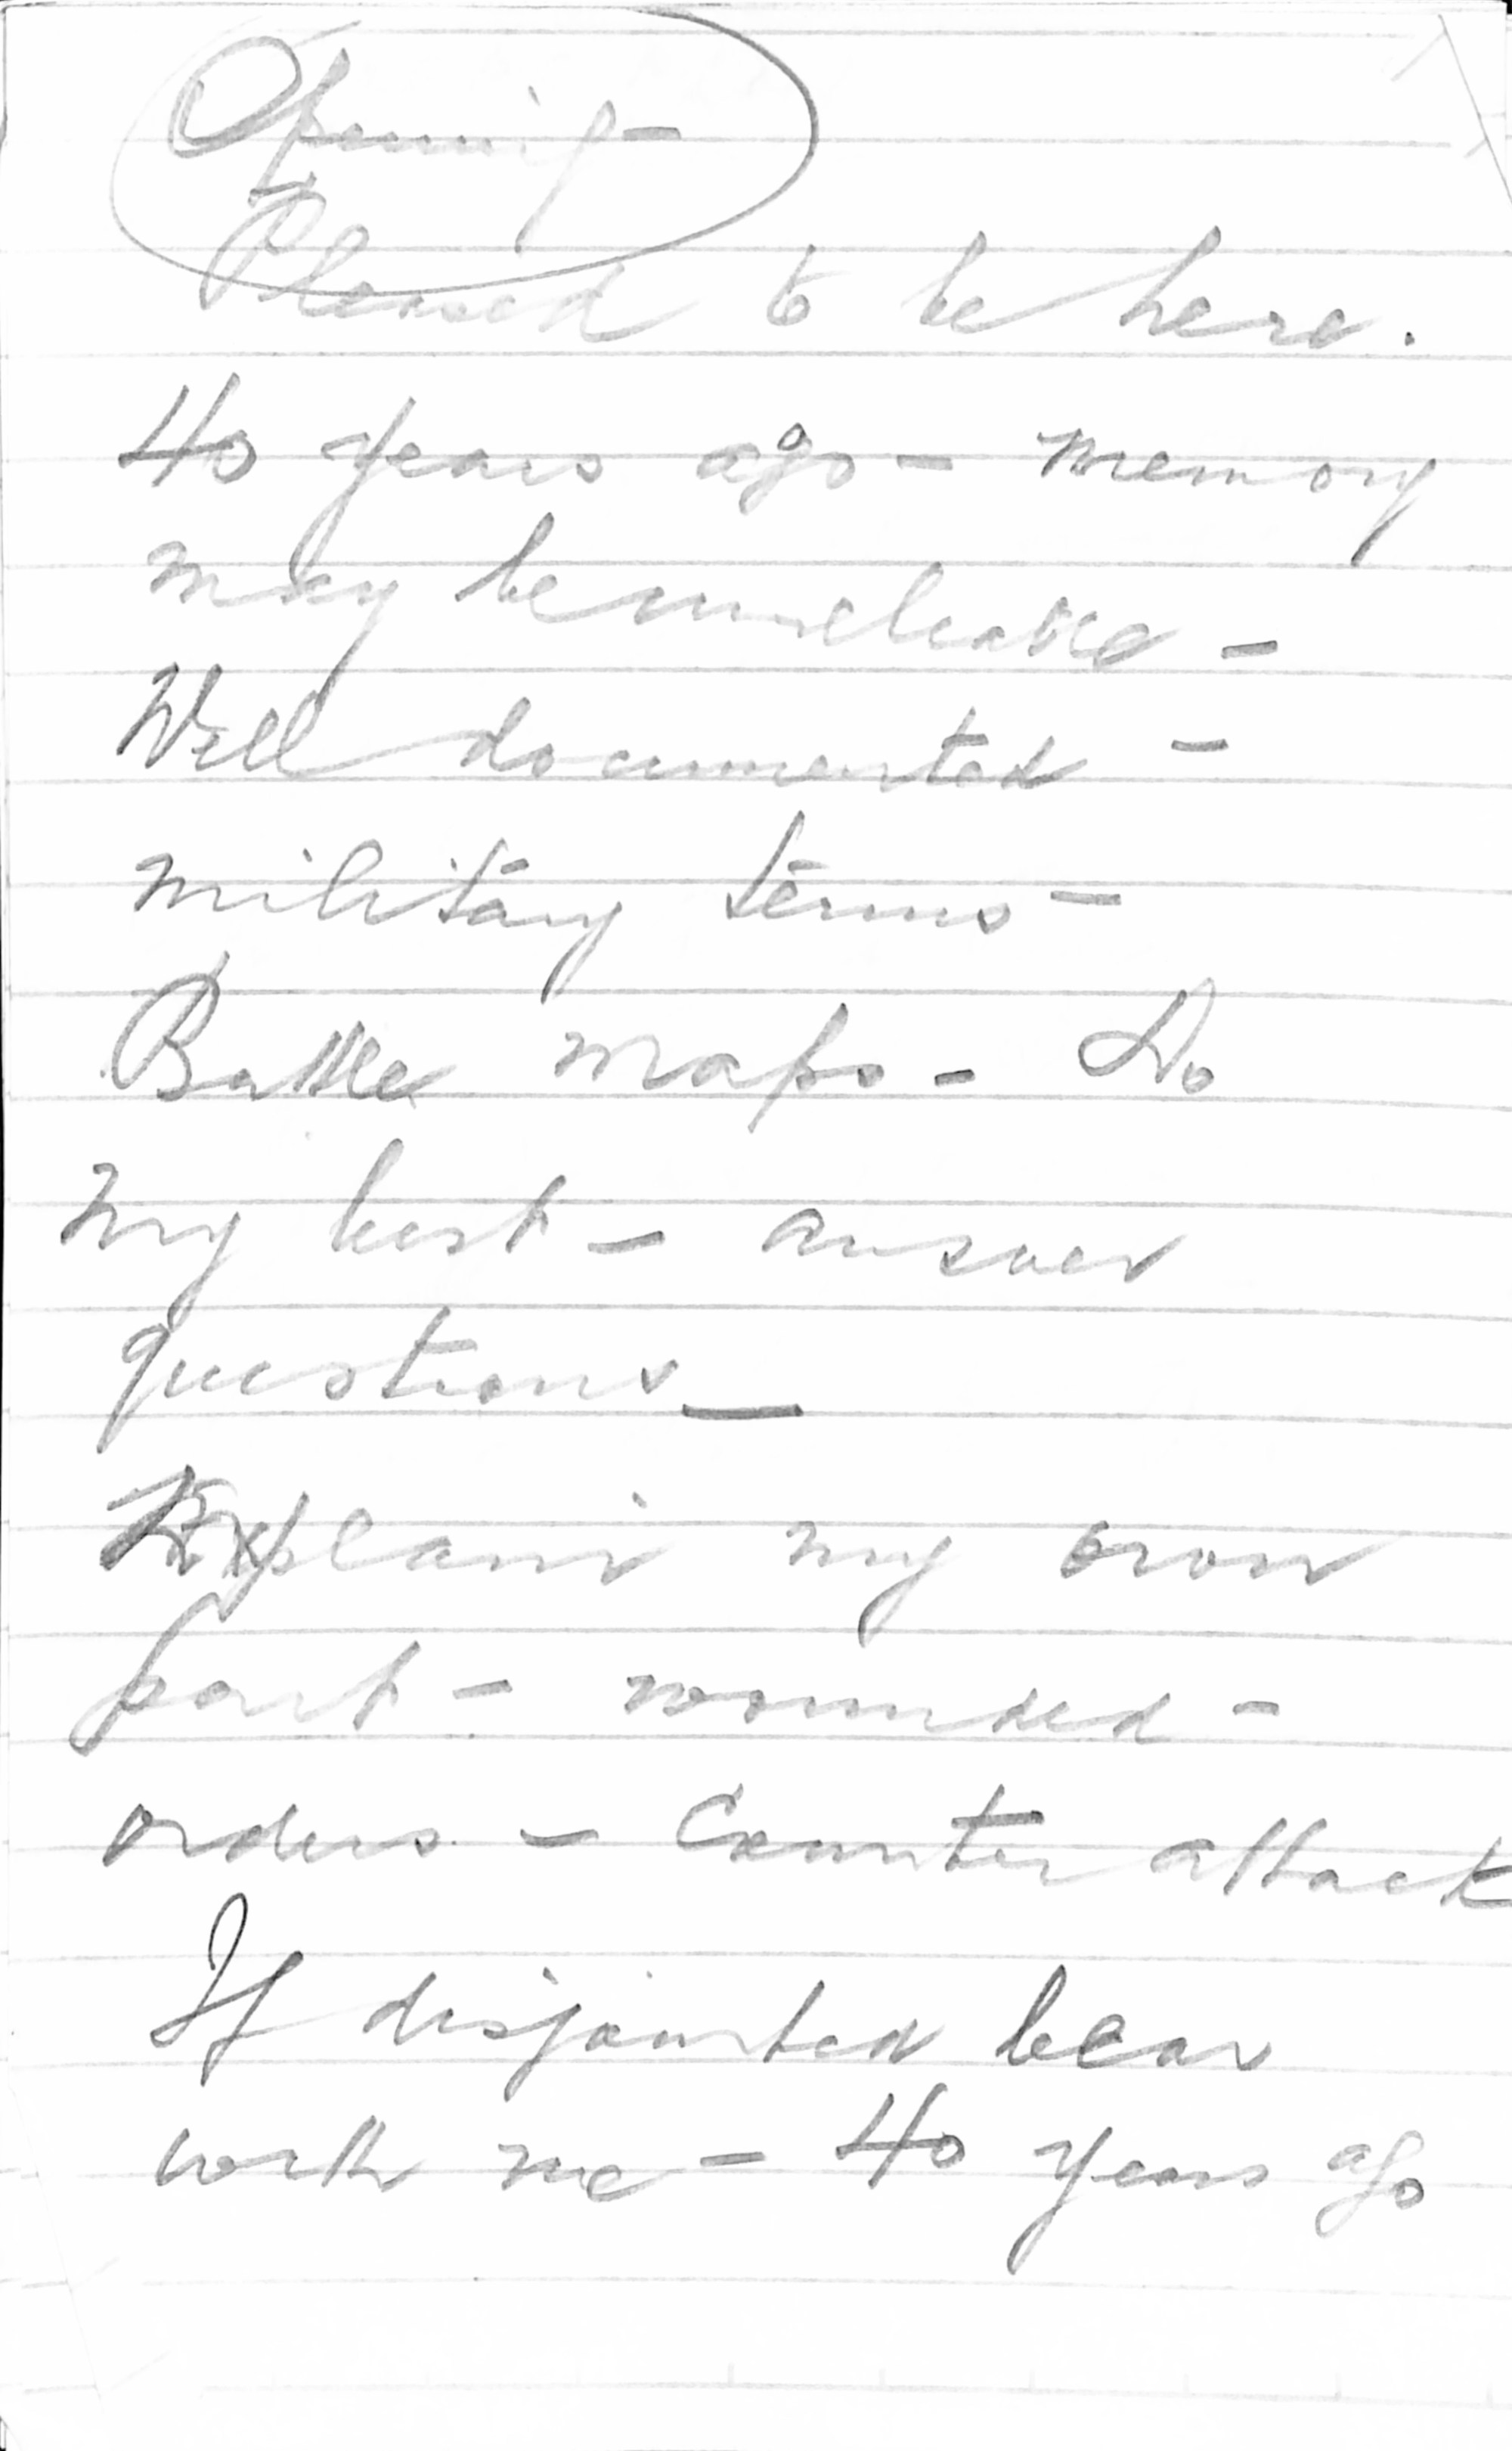 Opening -
Pleased to be here.
40 years ago - memory
may be unreliable -
Well documented -
military terms -
Battle maps - Do
my best - answer
questions _
Explain my own
part - wounded -
orders - Counter attack
If disjointed bear
with me - 40 years ago